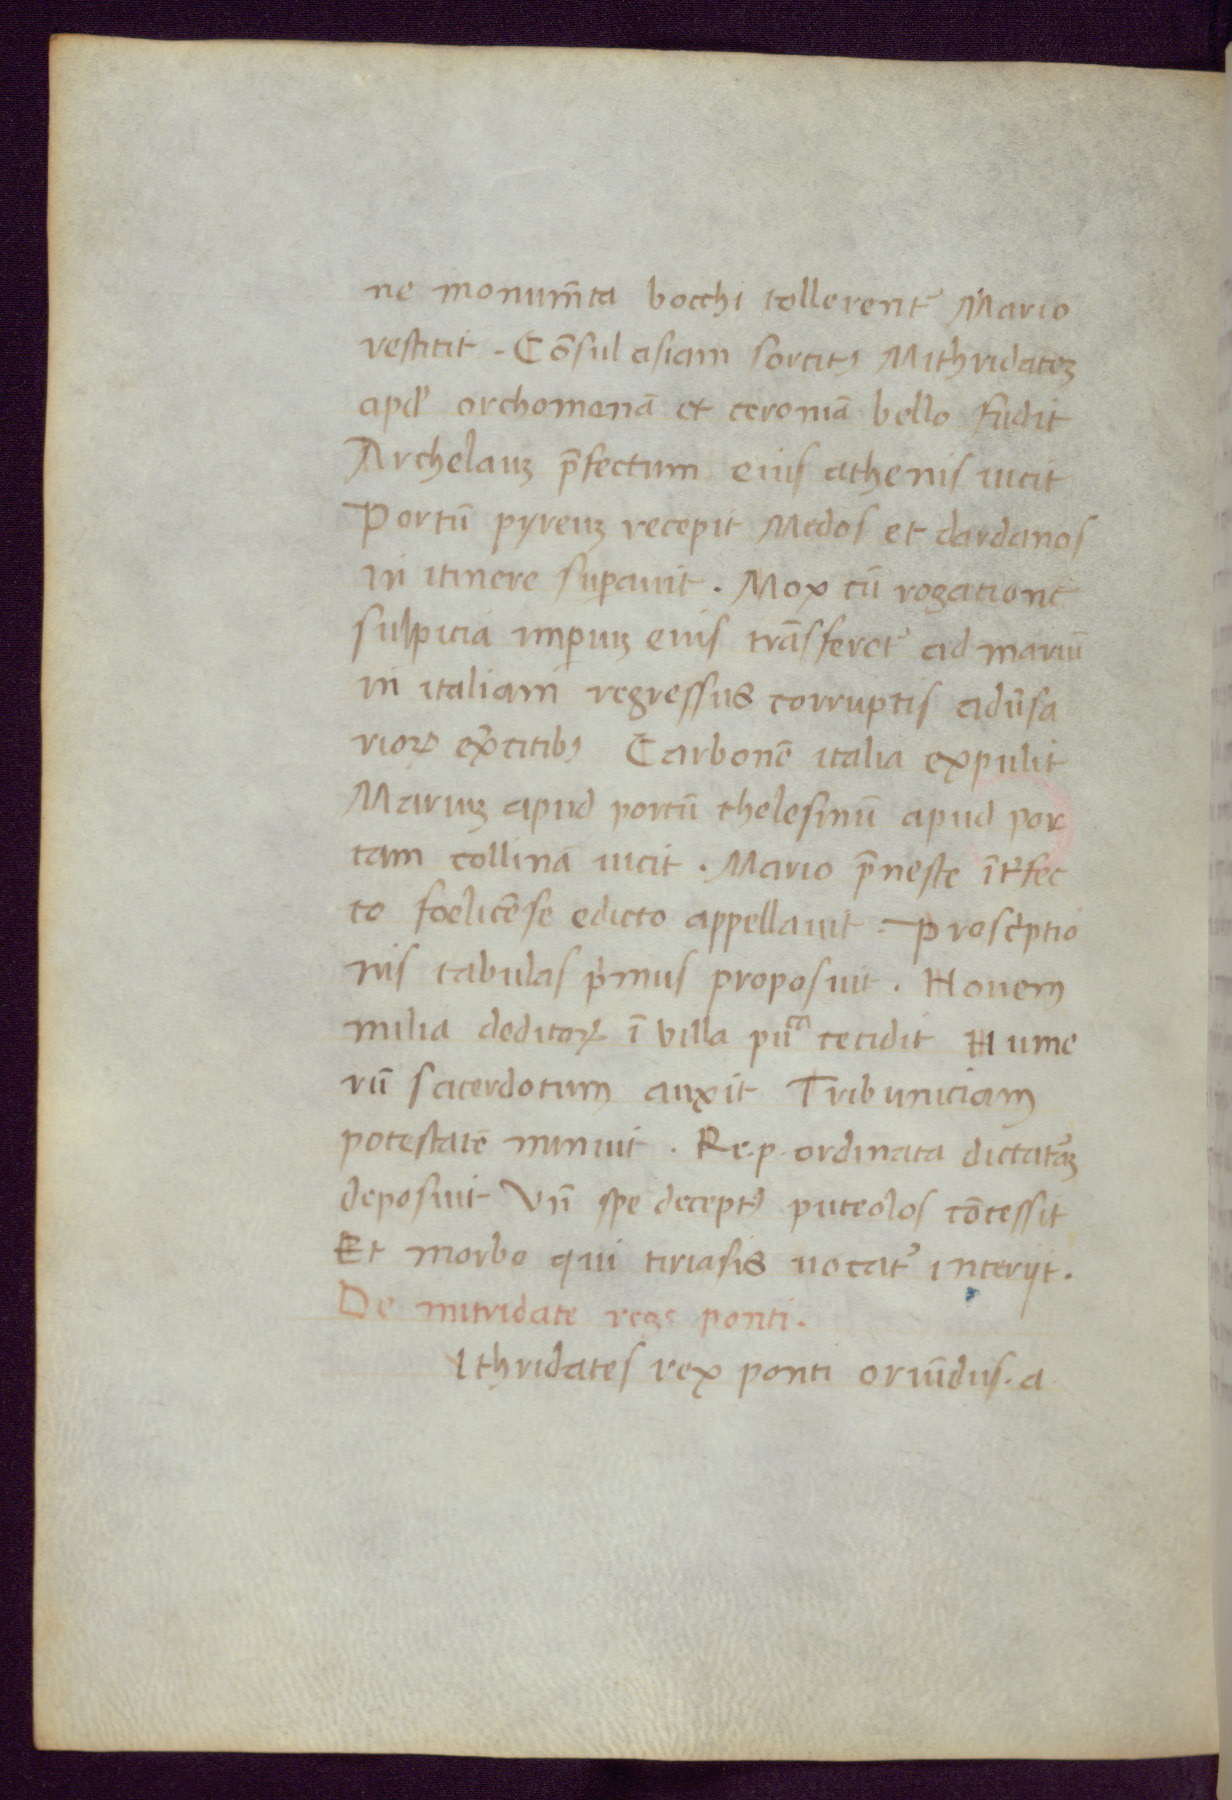 ne monum̄ta bocchi tollerent᷑ Mario
restitit . Cōsul asiam sortitꝰ Mithridateꝫ
apd' orchomenā et ceroniā bello fudit
Archelauꝫ p̄fectum eius athenis uicit
Portū pyreuꝫ recepit Medos et dardanos
in itinere suꝑauit . Mox cū rogatione
sulpicia imꝑiuꝫ eius trāsferet᷑ ad mariū
in italiam regressus corruptis adu̾sa
rioꝝ ex̾citibꝰ Carbonē italia expulit
Mariuꝫ apud portū thelesinū apud por
tam collinā uicit . Mario p̄neste īt̾fec
to foelicē se edicto appellauit . Proscͥptio
nis tabulas pͥmus proposuit . Nouem
milia deditoꝝ ī villa pūᶜᵃ cecidit Nume
rū sacerdotum auxit Tribuniciam
potestatē minuit . Re.p. ordinata dictat᷑aꝫ
deposuit Vn̄ spe deceptꝰ puteolos cōcessit
Et morbo qui tiriasis uocat᷑ interijt .
De mitridate rege ponti .
Ithridates rex ponti oriūdus . a